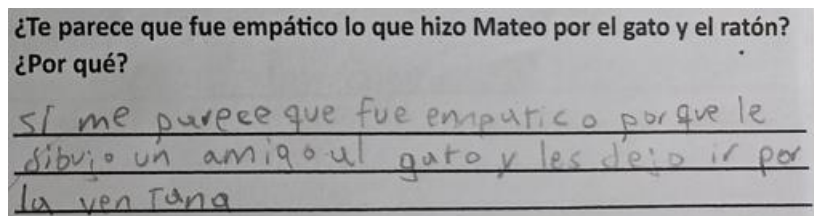 ¿Te parece que fue empático lo que hizo Mateo por el gato y el ratón?
¿Por qué?
SI me parece que fue empatico porque le
dibujo un amigo al gato y les dejo ir por
la ven Tana